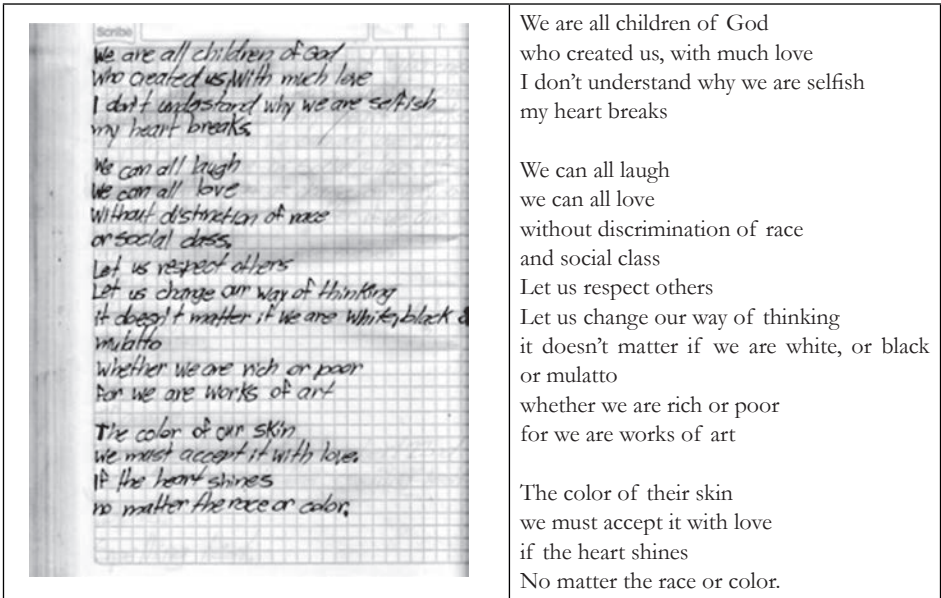 Scribe
We are all children of God
Who created us, With much love
I don't understand why we are selfish
my heart breaks.
We can all laugh
We can all love
Without distinction of race
or social class.
Let us respect others
Let us change our way of thinking
it doesn't matter if we are white, black &
mulatto
Whether we are rich or poor
For we are works of art
The color of our skin
we must accept it with love.
If the heart shines
no matter the race or color.
We are all children of God
who created us, with much love
I don’t understand why we are selfish
my heart breaks
We can all laugh
we can all love
without discrimination of race
and social class
Let us respect others
Let us change our way of thinking
it doesn’t matter if we are white, or black
or mulatto
whether we are rich or poor
for we are works of art
The color of their skin
we must accept it with love
if the heart shines
No matter the race or color.